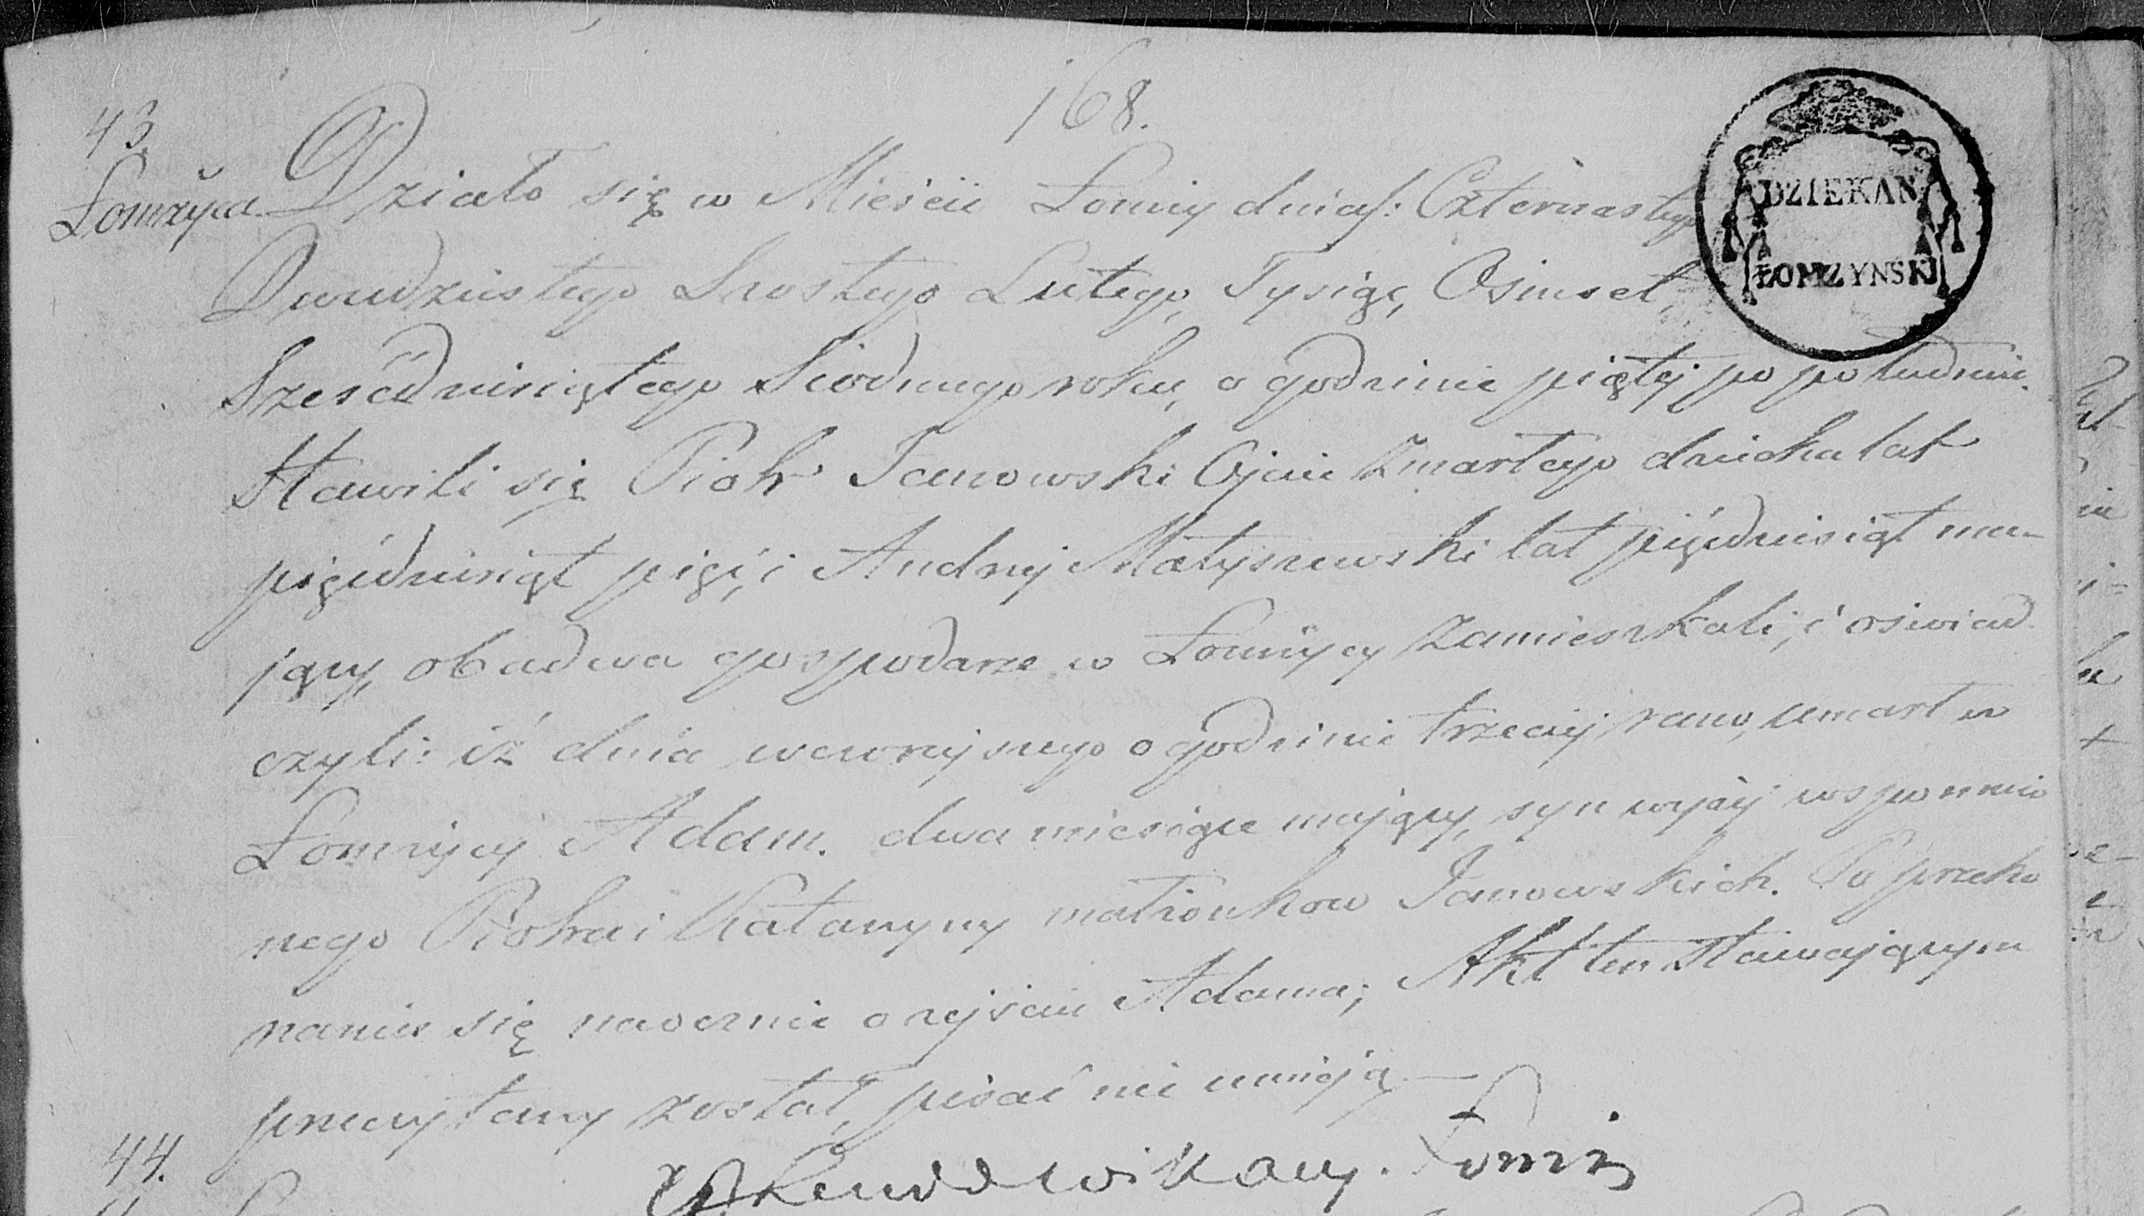 168.
43.
Łomżyca.
DZIEKAN
ŁOMZYNSKI
Działo się w Mieście Łomży dnia Czternastego
Dwudziestego Szostego Lutego, Tysiąc, Osimset,
Sześćdziesiątego Siodmego roku, o godzinie piątej po południu.
Stawili się Piotr Janowski Ojciec zmarłego dziecka lat
pięćdziesiąt pięć, i Andrzej Matyszewski lat pięćdziesiąt ma-
jący, obadwa gospodarze w Łomżycy zamieszkali, i oświad
czyli: iż dnia wczorajszego o godzinie trzeciej rano, umarł w
Łomżycy Adam. dwa miesiące mający, syn wyżej wspomnio
nego Piotra i Katarzyny małżonkow Janowskich. Po przeko
naniu się naocznie o zejściu Adama; Akt ten Stawającym
przeczytany został, pisać nie umieją
44.